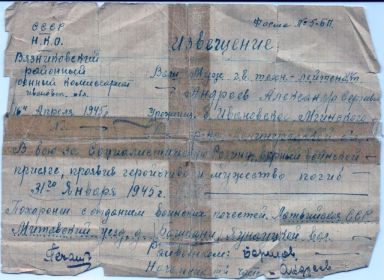 СССР
Форма № 5-БП
Н.К.О.
Извещение
Вязниковский
районный
военный комиссариат
Ивановск. обл.
Ваш муж гв. техн-лейтенант
Андреев Александр
16 Апреля 1945 г.
Уроженец с. Ивановское
№
В бою за Социалистическую Родину, верный воинской
присяге, проявив геройство и мужество погиб
31го Января 1945 г.
Похоронен с отданием воинских почестей Латвийская ССР
Митавский уезд, д.
Печать
Райвоенком:
Начальник части